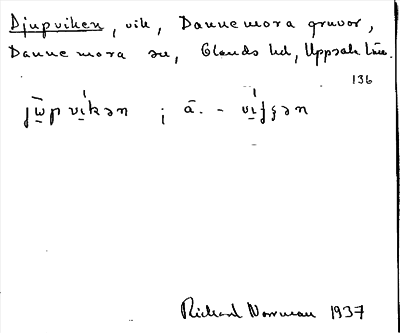 Djupviken, vik, Dannemora gruvor,
Dannemora sn, Olands hd, Uppsala län.
136
jω̄pvíkən ; ā. - víʃʂən
Richard Norrman 1937